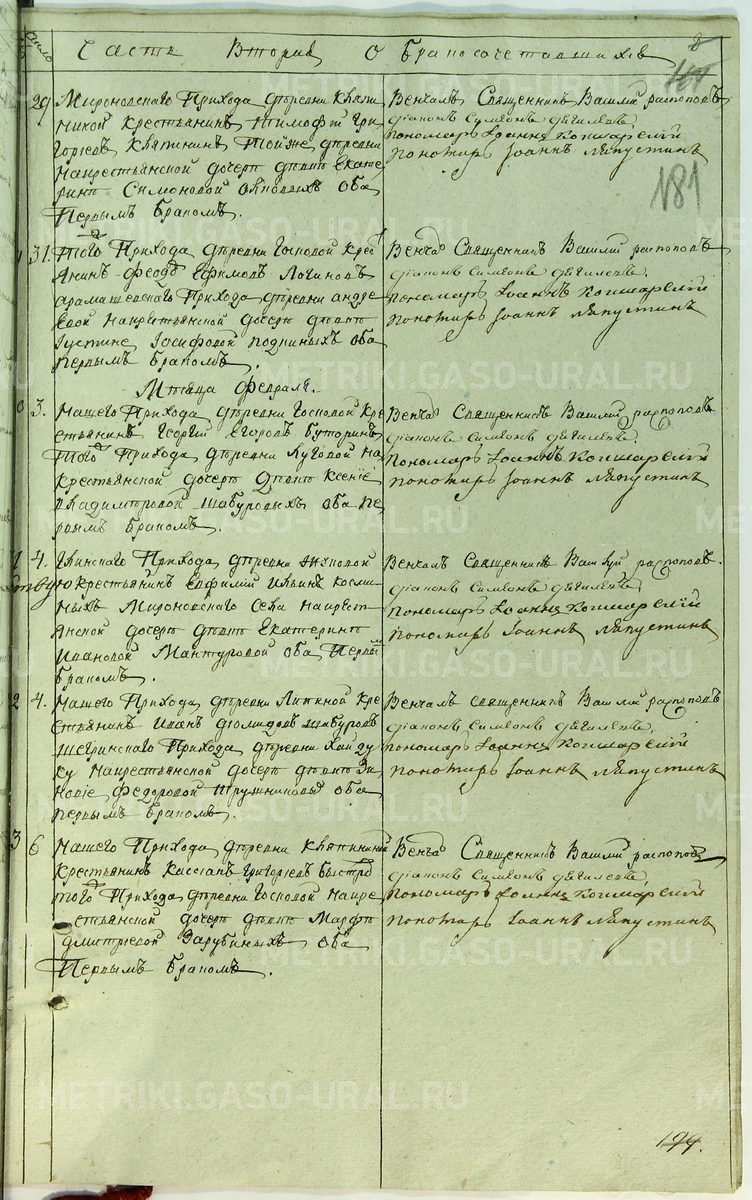 Часть Вторая о бракосочетавшихся
181
29 Мироновскаго Прихода деревни
крестьянинъ Тимофей Гри
горьевъ Квятининъ тойже деревни
накрестьянской дочери девке Екате
рине Симоновой оба
Первымъ бракомъ.
Венчалъ Священникъ Василий располовъ
диаконъ Симеонъ дягилевъ
пономарь Иоаннъ Кошарский
пономарь Иоаннъ Ляпустинъ
31. Того Прихода деревни Гостковой крест
янинъ Феодоръ Ефимовъ Логиновъ
арамашевскаго Прихода деревни андре
евой накрестьянской дочери девке
Иустине Иосифовой подкиныхъ оба
первымъ бракомъ.
Венча Священникъ Василий располовъ
диаконъ Симеонъ дягилевъ
пономарь Иоаннъ Кошарский
пономарь Иоаннъ Ляпустинъ
Месяца Февраля.
3. Нашего Прихода деревни Гостковой Кре
стьянинъ Георгий Егоровъ Буторинъ
того Прихода деревни Луговой на
крестьянской дочери девке Ксение
Владимировой Шабуровыхъ оба пе
рвымъ бракомъ.
Венча Священникъ Василий располовъ
диаконъ Симеонъ дягилевъ
пономарь Иоаннъ Кошарский
пономарь Иоаннъ Ляпустинъ
4. Прихода деревни
крестьянинъ Евфимий Ильинъ Косми
ныхъ Мироновскаго Села накрест
янской дочери девке Екатерине
Ивановой Мантуровой оба Первым
бракомъ.
Венчалъ Священникъ Василий располовъ.
диаконъ Симеонъ дягилевъ
пономарь Иоаннъ Кошарский
пономарь Иоаннъ Ляпустинъ
4. Нашего Прихода деревни Липиной кре
стьянинъ Иванъ Шабуровъ
Шегринскаго Прихода деревни Хайду
ку накрестьянской дочери девке Зи
новие Федоровой оба
первымъ бракомъ.
Венчалъ священникъ Василий располовъ
диаконъ Симеонъ дягилевъ,
пономарь Иоаннъ Кошарский
пономарь Иоаннъ Ляпустинъ
6 Нашего Прихода деревни
крестьянинъ Кассианъ Григорьевъ
того Прихода деревни Гостковой накре
стьянской дочери девке Марфе
Дмитриевой Зарубиныхъ оба
Первымъ бракомъ.
Венча Священникъ Василий располовъ
диаконъ Симеонъ дягилевъ
пономарь Иоаннъ Кошарский
пономарь Иоаннъ Ляпустинъ
194.
METRIKI.GASO-URAL.RU